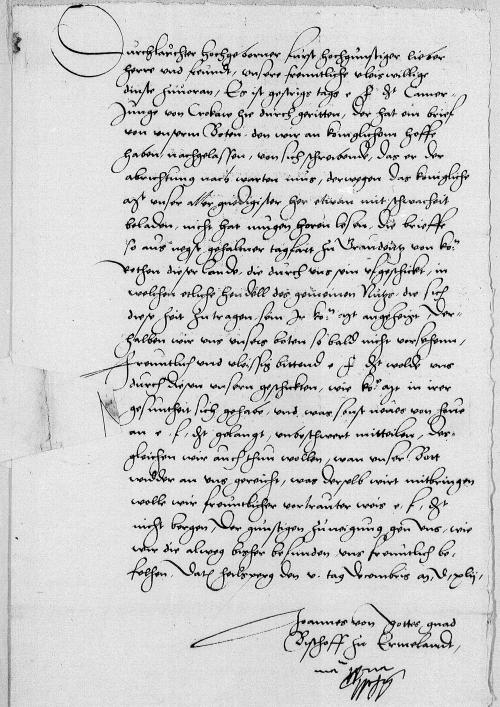 Durchlauchter hochgeborner furst hochgunstiger lieber
herre und freundt, unsere freuntliche vleiswillige
dinste zuvoran, Es ist gestrigs tags e f dt Camer¬
junge von Crokaw hie durchgeritten, der hat ein brief
von unserm Boten, den wir an koniglichem hoffe
haben nachgelassen, von sich schreibende, das er der
abrichtung noch warten mus, derwegen das konigliche
mat unser aller gnedigister her etwan mit schwacheit
beladen, nicht hat mugen horen lesen, die brieffe
so aus negst gehaltner tagfart zu Graudentz von ko.
rethen dieser lande, die durch uns sein ufgeschickt, in
welchen etliche hendell des gemeinen Nutzs, die sich
diese zeit zutragen, sein Ir ko. mt angezeigt, Der¬
halben wir uns unsers boten so bald nicht versehenn,
freuntlich und vleissig bittend e f dt wolde uns
durch diesen unsern geschickten, wie ko. mt in irer
gesuntheit sich gehabe, und was sonst neues von hove
an e. f. dt gelangt, unbeschwert mitteilen, Des¬
gleichen wir auch thun wollen, wan unser Bott
widder an uns gereicht, was derselb wirt mitbringen
wolle wir freuntlicher vertrauter weis e. f. dt
nicht bergen, Der gunstigen zuneigung gen uns, wie
wir die alweg bisher befunden, uns freuntlich be¬
felhen, Dat heilsperg den v. tag Decembris m. d. xlij.
Joannes von gottes gnad
Bischoff zu Ermelandt,